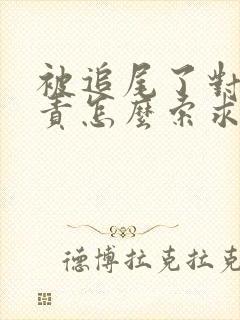 被追尾了對
責怎麼索求
德博拉克拉克